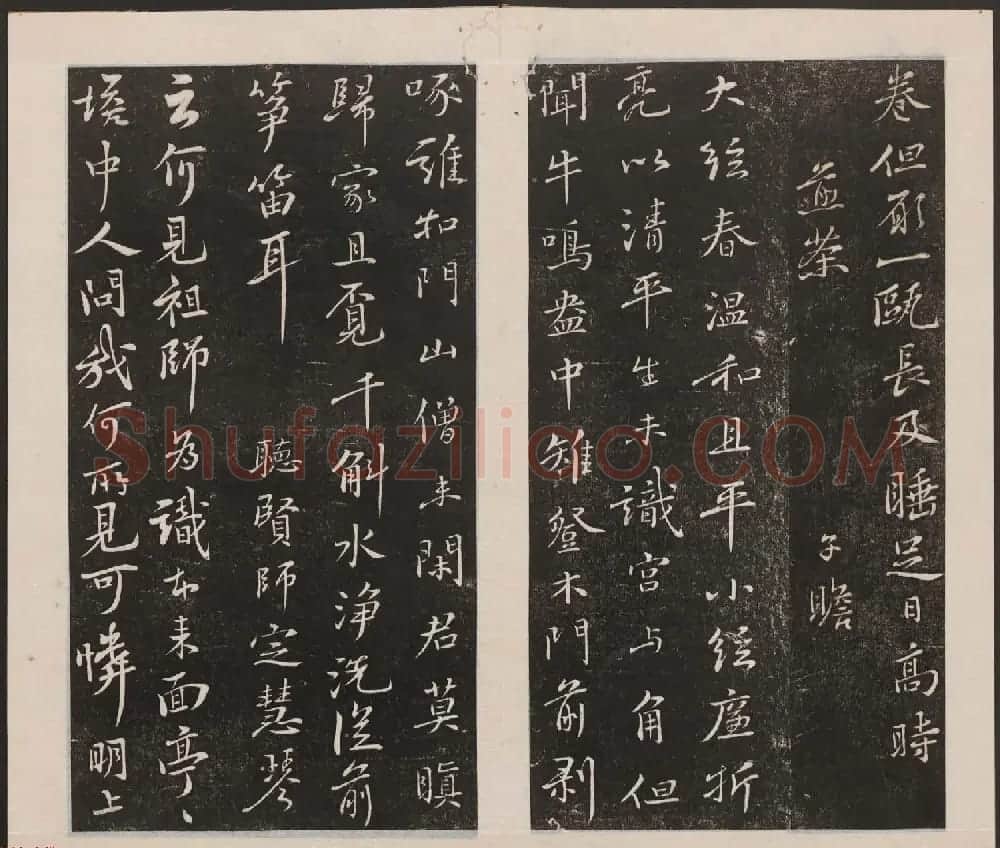 卷但願一甌長及睡足日高時
煎茶 子瞻
大絃春溫和且平小絃廉折
亮以清平生未識宮与角但
聞牛鳴盎中雉登木門前剥
啄誰扣門山僧未閑君莫瞋
歸家且覓千斛水淨洗從前
箏笛耳 聽賢師定慧琴
云何見祖師為識本来面亭〻
塔中人問我何所見可憐明上
Shufaziliao.COM